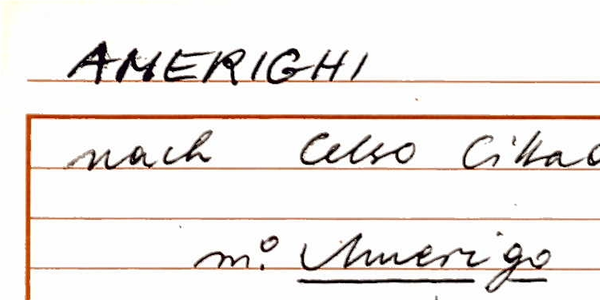 AMERIGHI
nach Celso Cittad
m.º Amerigo